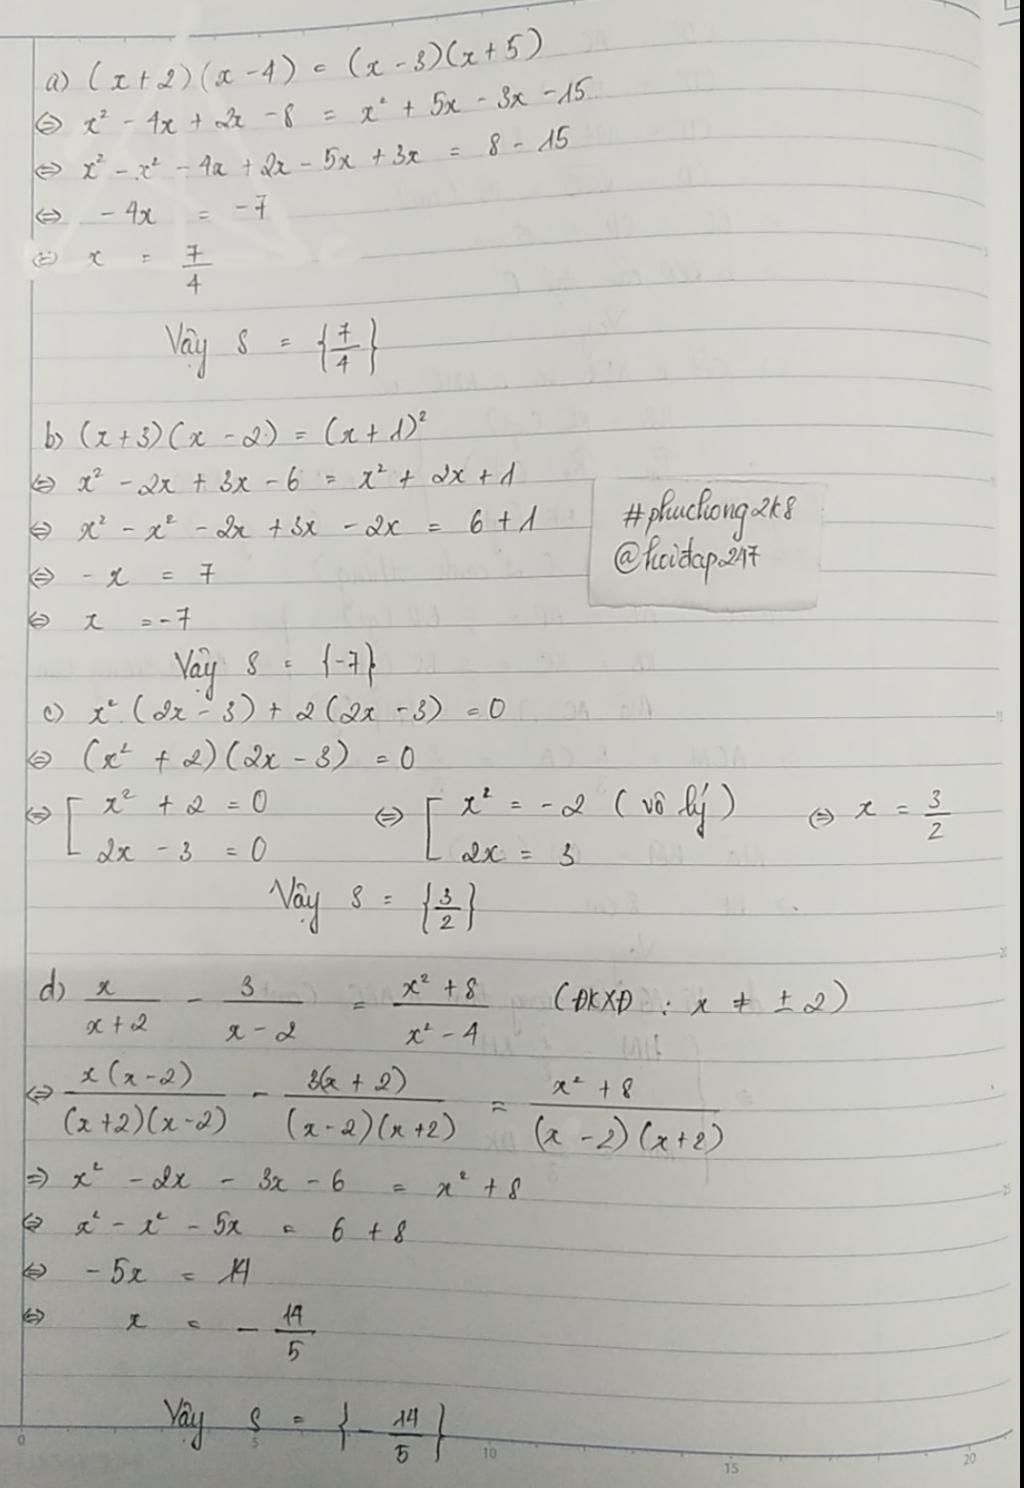 a) (x+2)(x-4) = (x-3)(x+5)
⇔ x² - 4x + 2x - 8 = x² + 5x - 3x - 15
⇔ x² - x² - 4x + 2x - 5x + 3x = 8 - 15
⇔ - 4x = -7
⇔ x = 7/4
Vậy S = {7/4}
b) (x+3)(x-2) = (x+1)²
⇔ x² - 2x + 3x - 6 = x² + 2x + 1
⇔ x² - x² - 2x + 3x - 2x = 6 + 1
⇔ - x = 7
⇔ x = -7
Vậy S = {-7}
#phuchong2k8
@hoidap247
c) x² (2x - 3) + 2(2x - 3) = 0
⇔ (x² + 2)(2x - 3) = 0
⇔ [ x² + 2 = 0 ⇔ [ x² = -2 (vô lý) ⇔ x = 3/2
2x - 3 = 0 2x = 3
Vậy S = {3/2}
d) x/(x+2) - 3/(x-2) = (x²+8)/(x²-4) (ĐKXĐ : x ≠ ±2)
⇔ x(x-2)/(x+2)(x-2) - 3(x+2)/(x-2)(x+2) = (x²+8)/(x-2)(x+2)
⇒ x² - 2x - 3x - 6 = x² + 8
⇔ x² - x² - 5x = 6 + 8
⇔ - 5x = 14
⇔ x = - 14/5
Vậy S = {- 14/5}
0 5 10 15 20